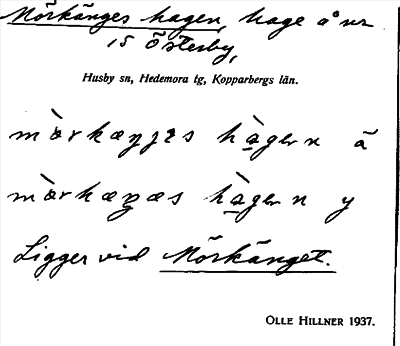 Mörkänges hagen, hage å nr
15 Österby,
Husby sn, Hedemora tg, Kopparbergs län.
mòrkæŋɟɛs hàgen ä
mòrkæŋæs hàgen y
Ligger vid Mörkänget.
OLLE HILLNER 1937.